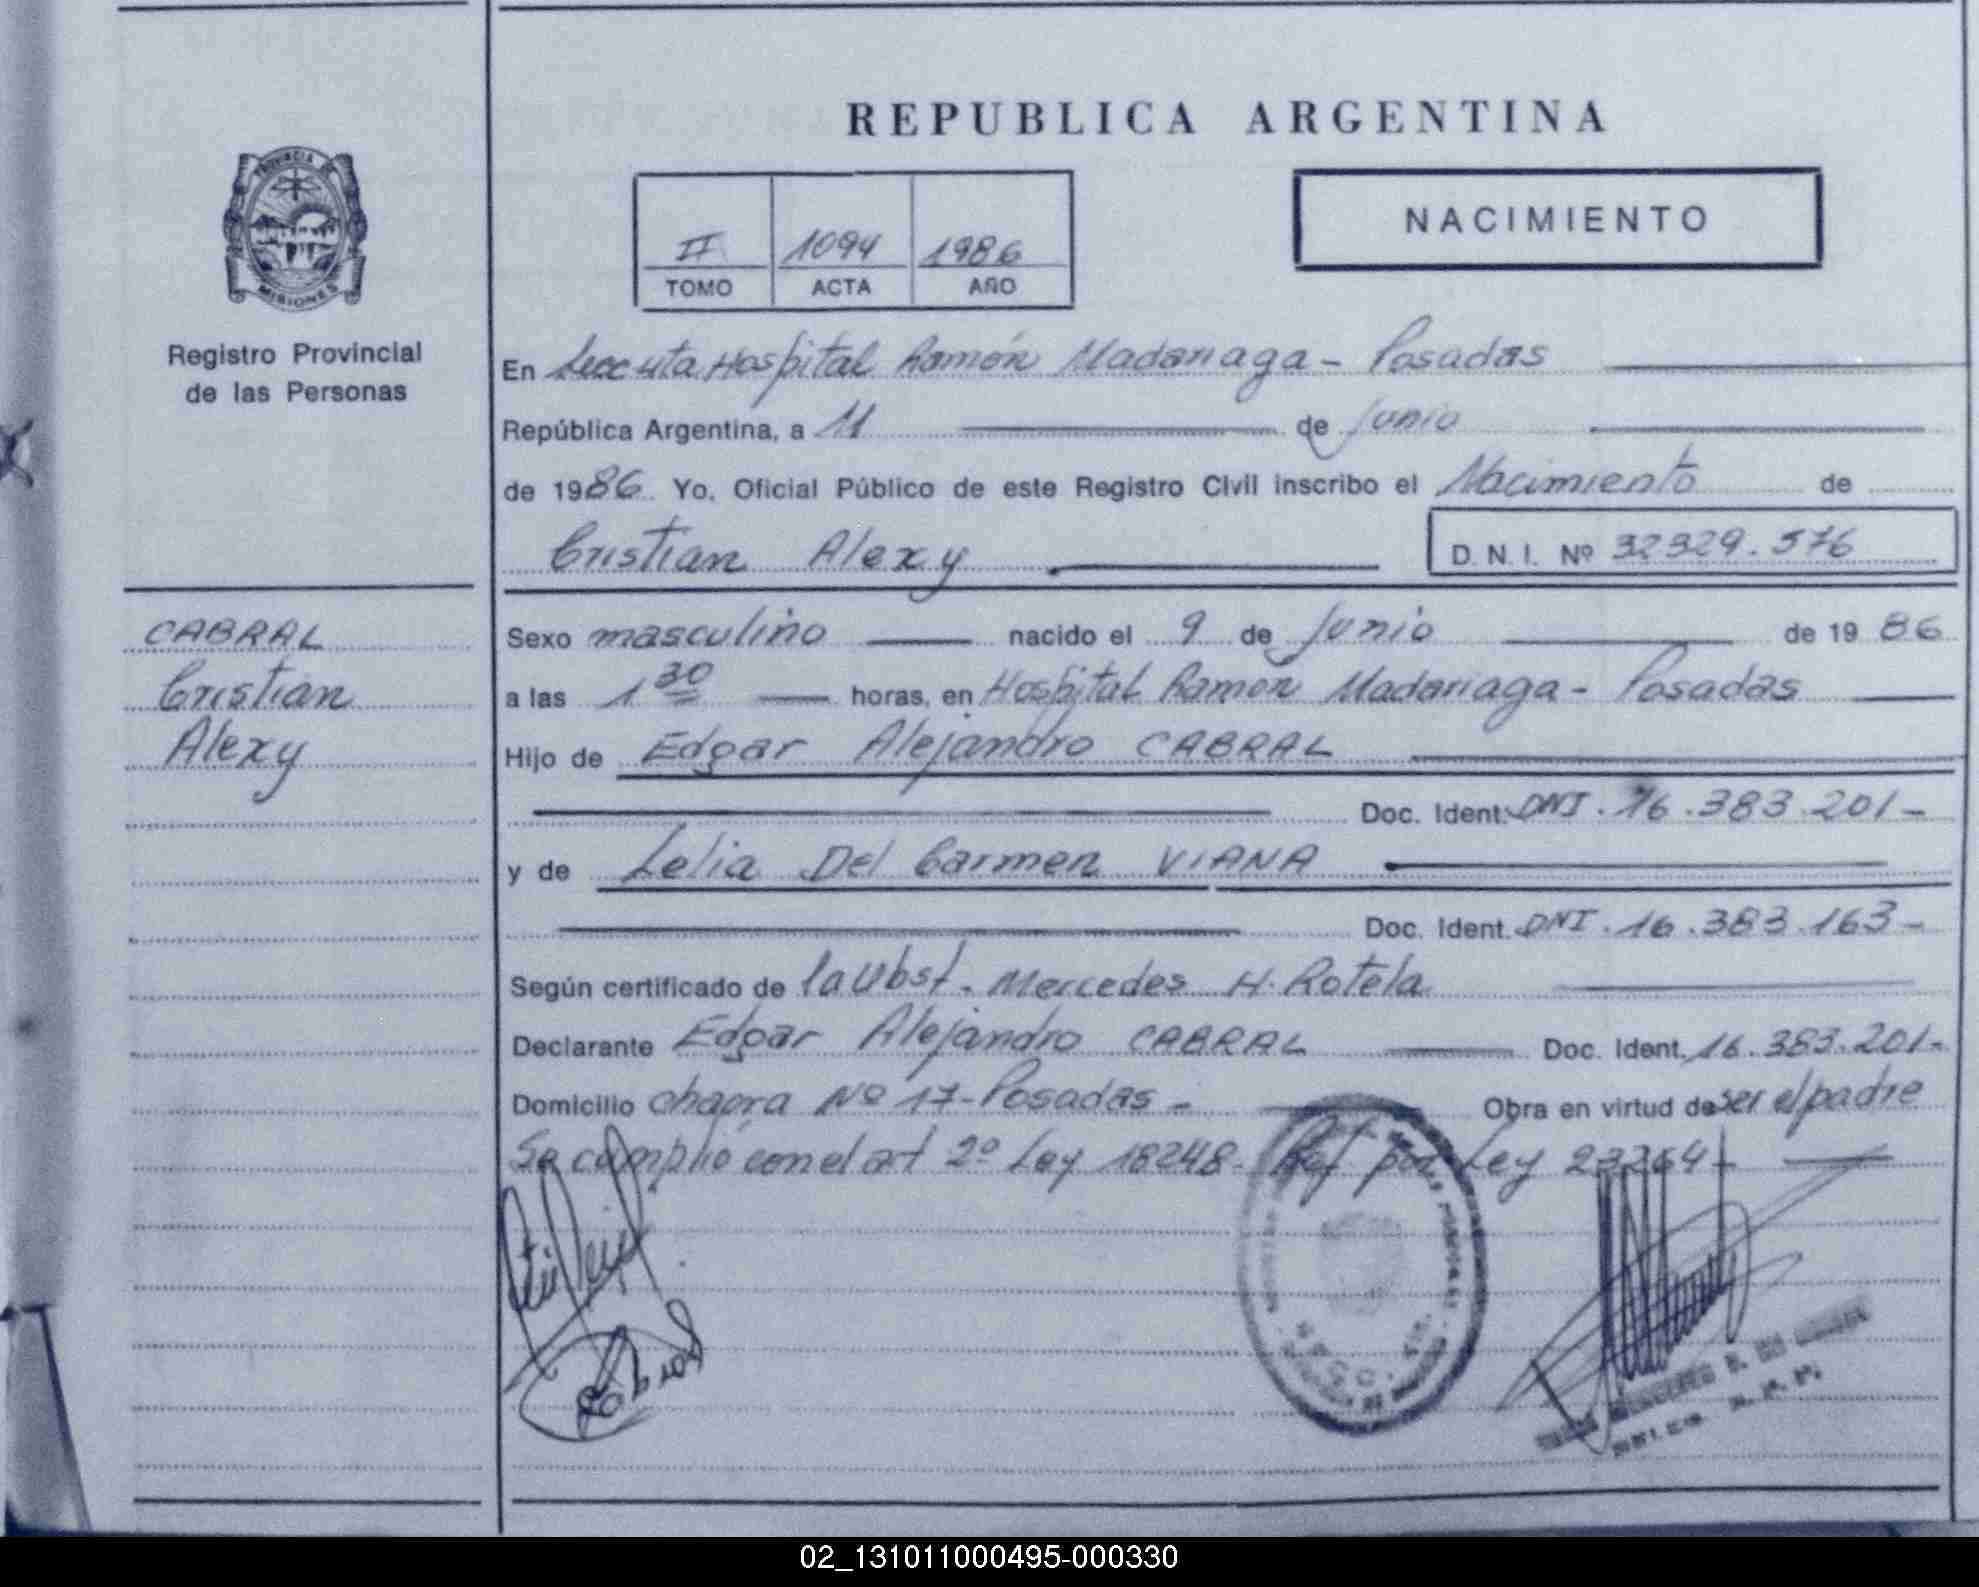 REPUBLICA ARGENTINA
PROVINCIA DE
MISIONES
Registro Provincial
de las Personas
II 1094 1986
TOMO ACTA AÑO
NACIMIENTO
En Hospital Ramón Madariaga - Posadas
República Argentina, a 11 de Junio
de 1986 Yo, Oficial Público de este Registro Civil inscribo el Nacimiento de
Cristian Alexy D. N. I. Nº 32329.576
CABRAL
Cristian
Alexy
Sexo masculino nacido el 9 de Junio de 1986
a las 1 30 horas, en Hospital Ramón Madariaga - Posadas
Hijo de Edgar Alejandro CABRAL
Doc. Ident. DNI. 16.383.201-
y de Lelia Del Carmen VIANA
Doc. Ident. DNI. 16.383.163-
Según certificado de la Obst. Mercedes H. Rotela
Declarante Edgar Alejandro CABRAL Doc. Ident. 16.383.201-
Domicilio chacra Nº 17-Posadas - Obra en virtud de ser el padre
Se cumplió con el art 2º Ley 18248- Ref por Ley 23264-
Cabral
02_131011000495-000330